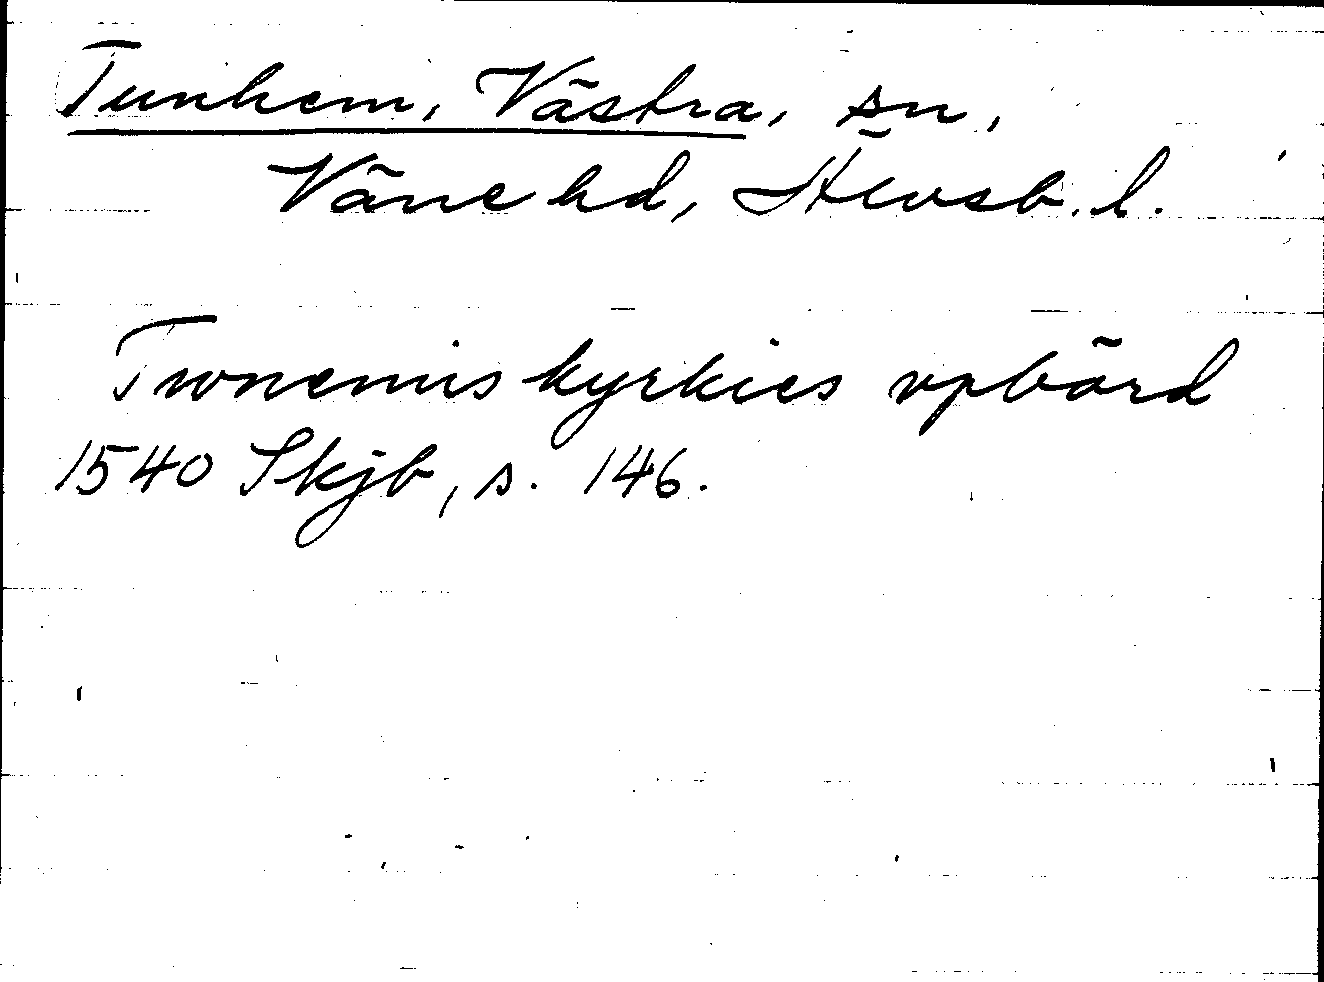 Tunhem, Västra, sn,
Väne hd, Älvsb. l.
Twnemis kyrkies vpbörd
1540 Skjb, s. 146.